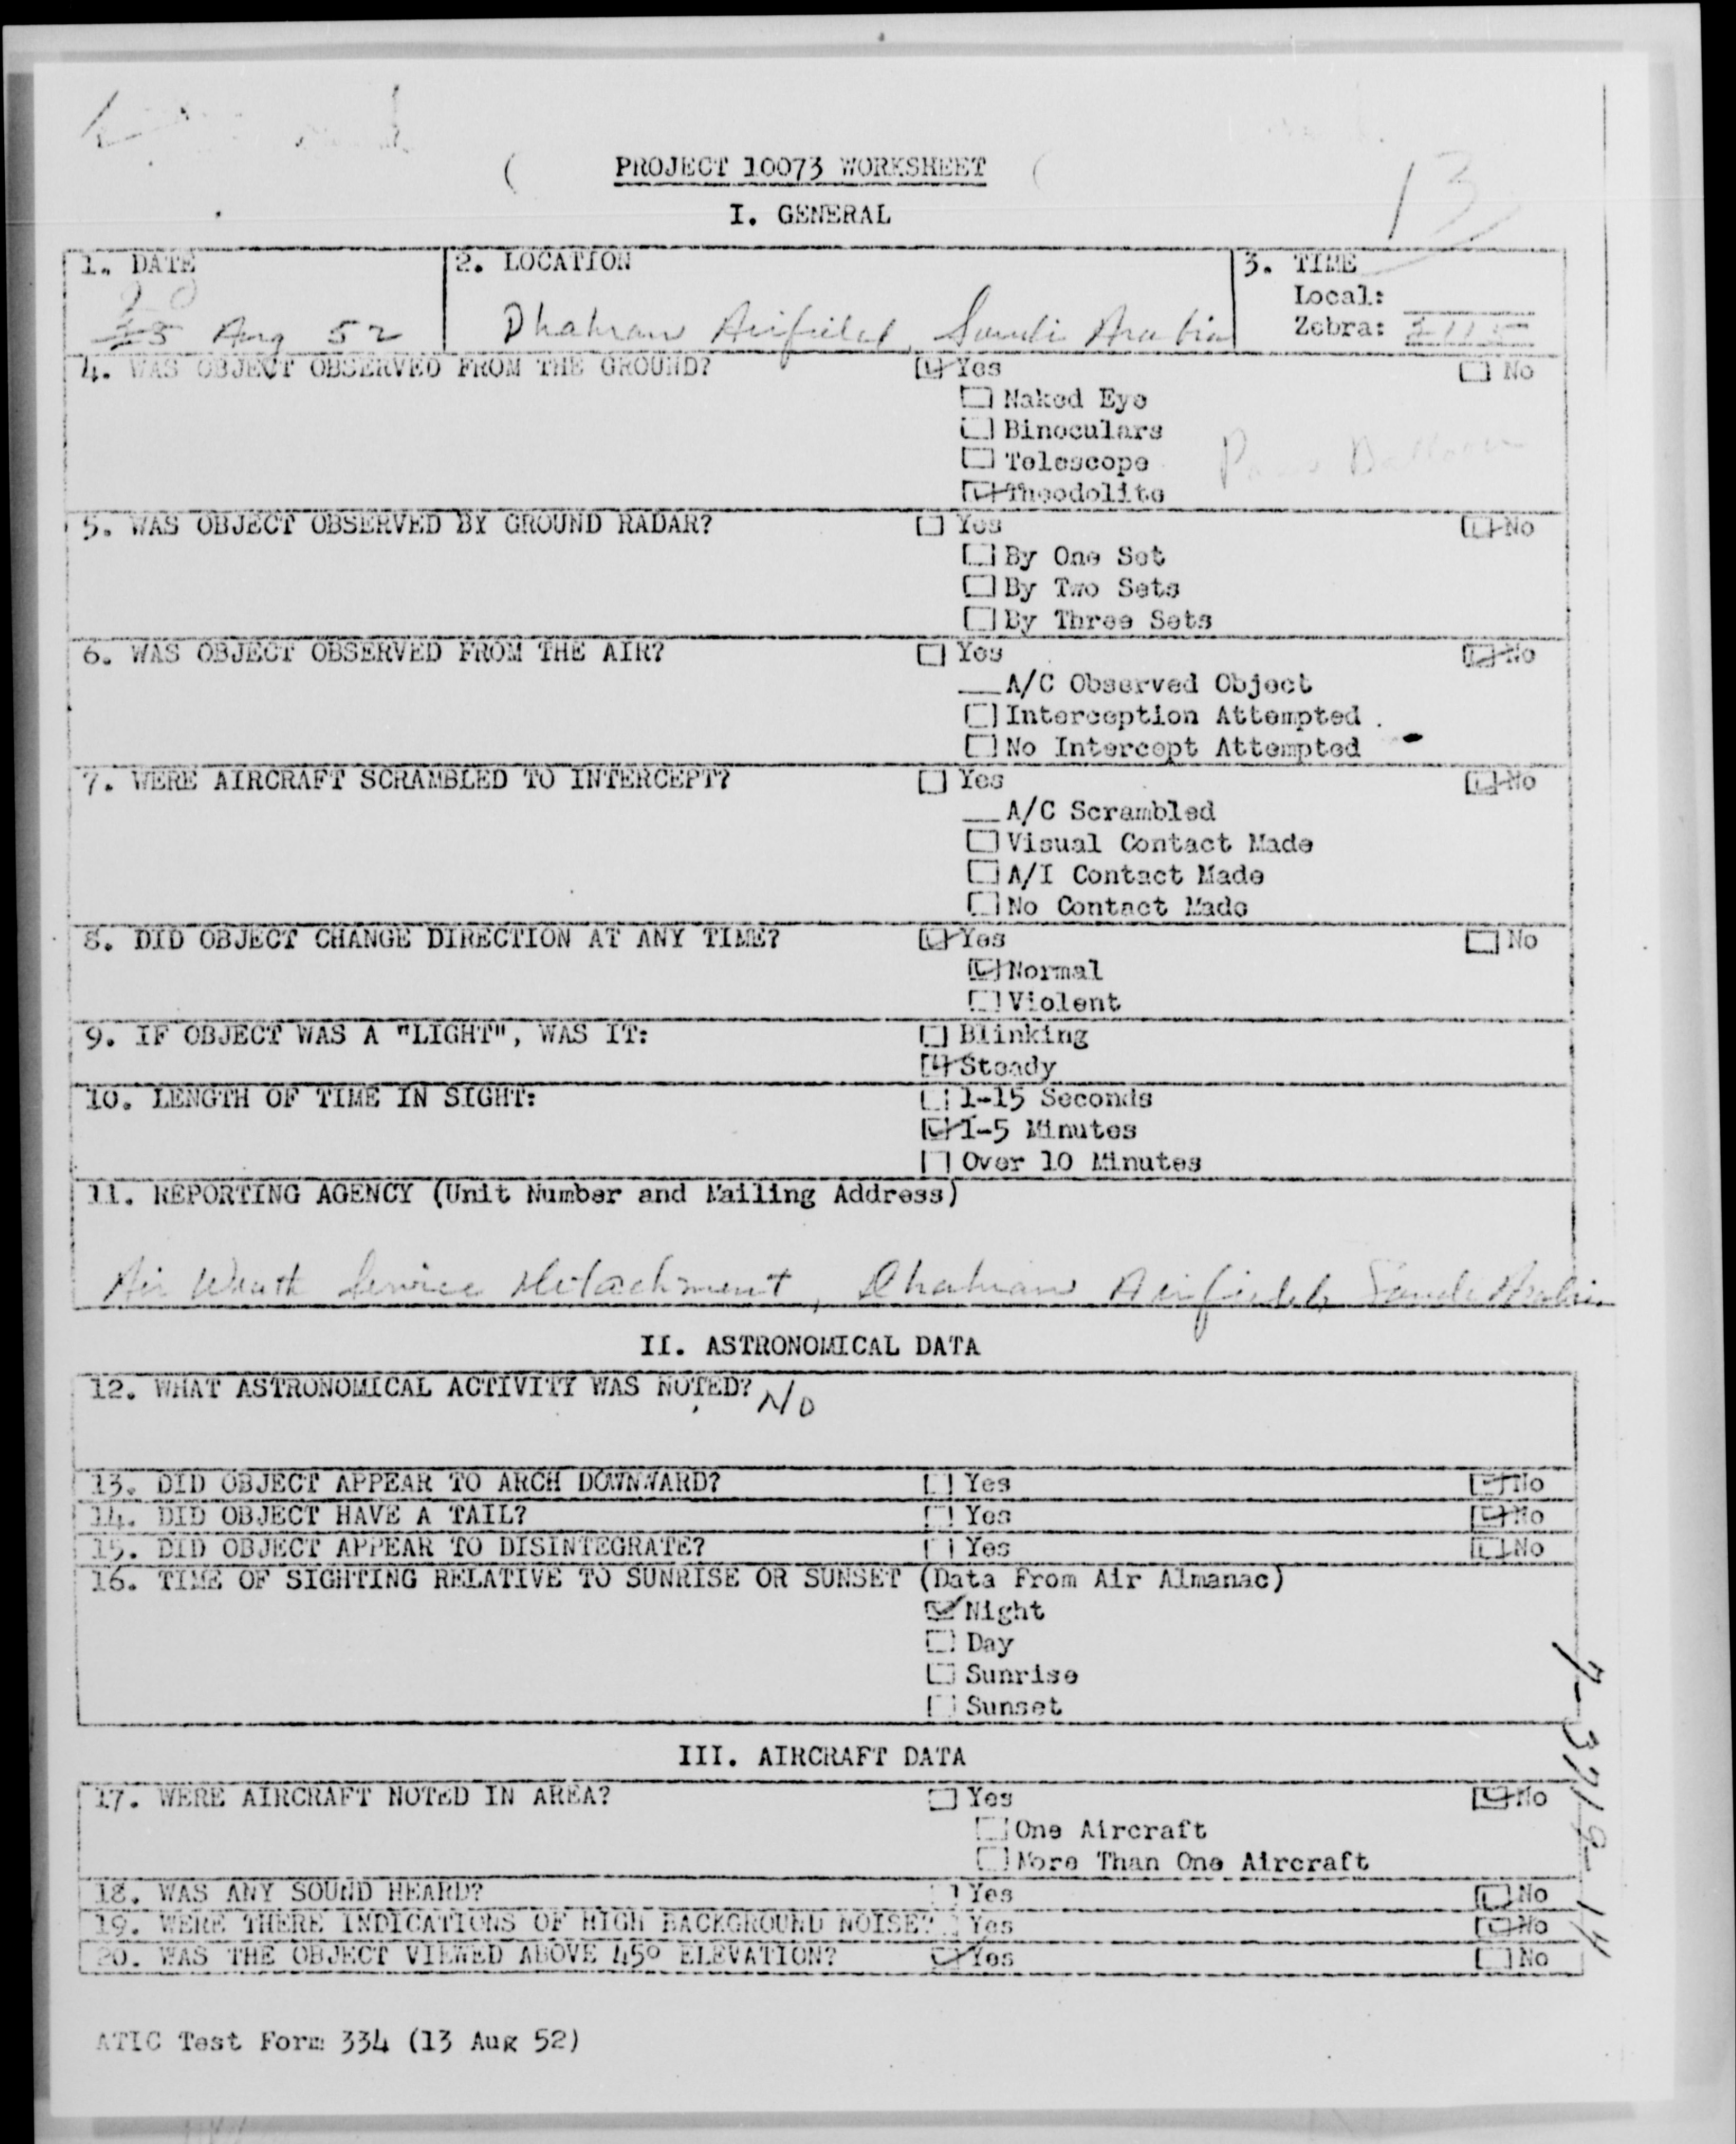 PROJECT 10073 WORKSHEET
13
I. GENERAL
1. DATE
20
23 Aug 52
2. LOCATION
Dhahran Airfield, Saudi Arabia
3. TIME
Local:
Zebra: 2115
4. WAS OBJECT OBSERVED FROM THE GROUND? Yes No
Naked Eye
Binoculars
Telescope
Balloon
Theodolite
5. WAS OBJECT OBSERVED BY GROUND RADAR? Yes No
By One Set
By Two Sets
By Three Sets
6. WAS OBJECT OBSERVED FROM THE AIR? Yes No
A/C Observed Object
Interception Attempted
No Intercept Attempted
7. WERE AIRCRAFT SCRAMBLED TO INTERCEPT? Yes No
A/C Scrambled
Visual Contact Made
A/I Contact Made
No Contact Made
8. DID OBJECT CHANGE DIRECTION AT ANY TIME? Yes No
Normal
Violent
9. IF OBJECT WAS A "LIGHT", WAS IT: Blinking
Steady
10. LENGTH OF TIME IN SIGHT: 1-15 Seconds
1-5 Minutes
Over 10 Minutes
11. REPORTING AGENCY (Unit Number and Mailing Address)
Air Weath Service Detachment, Dhahran Airfield, Saudi Arabia
II. ASTRONOMICAL DATA
12. WHAT ASTRONOMICAL ACTIVITY WAS NOTED? No
13. DID OBJECT APPEAR TO ARCH DOWNWARD? Yes No
14. DID OBJECT HAVE A TAIL? Yes No
15. DID OBJECT APPEAR TO DISINTEGRATE? Yes No
16. TIME OF SIGHTING RELATIVE TO SUNRISE OR SUNSET (Data From Air Almanac)
Night
Day
Sunrise
Sunset
III. AIRCRAFT DATA
17. WERE AIRCRAFT NOTED IN AREA? Yes No
One Aircraft
More Than One Aircraft
18. WAS ANY SOUND HEARD? Yes No
19. WERE THERE INDICATIONS OF HIGH BACKGROUND NOISE? Yes No
20. WAS THE OBJECT VIEWED ABOVE 45° ELEVATION? Yes No
7-3712-14
ATIC Test Form 334 (13 Aug 52)